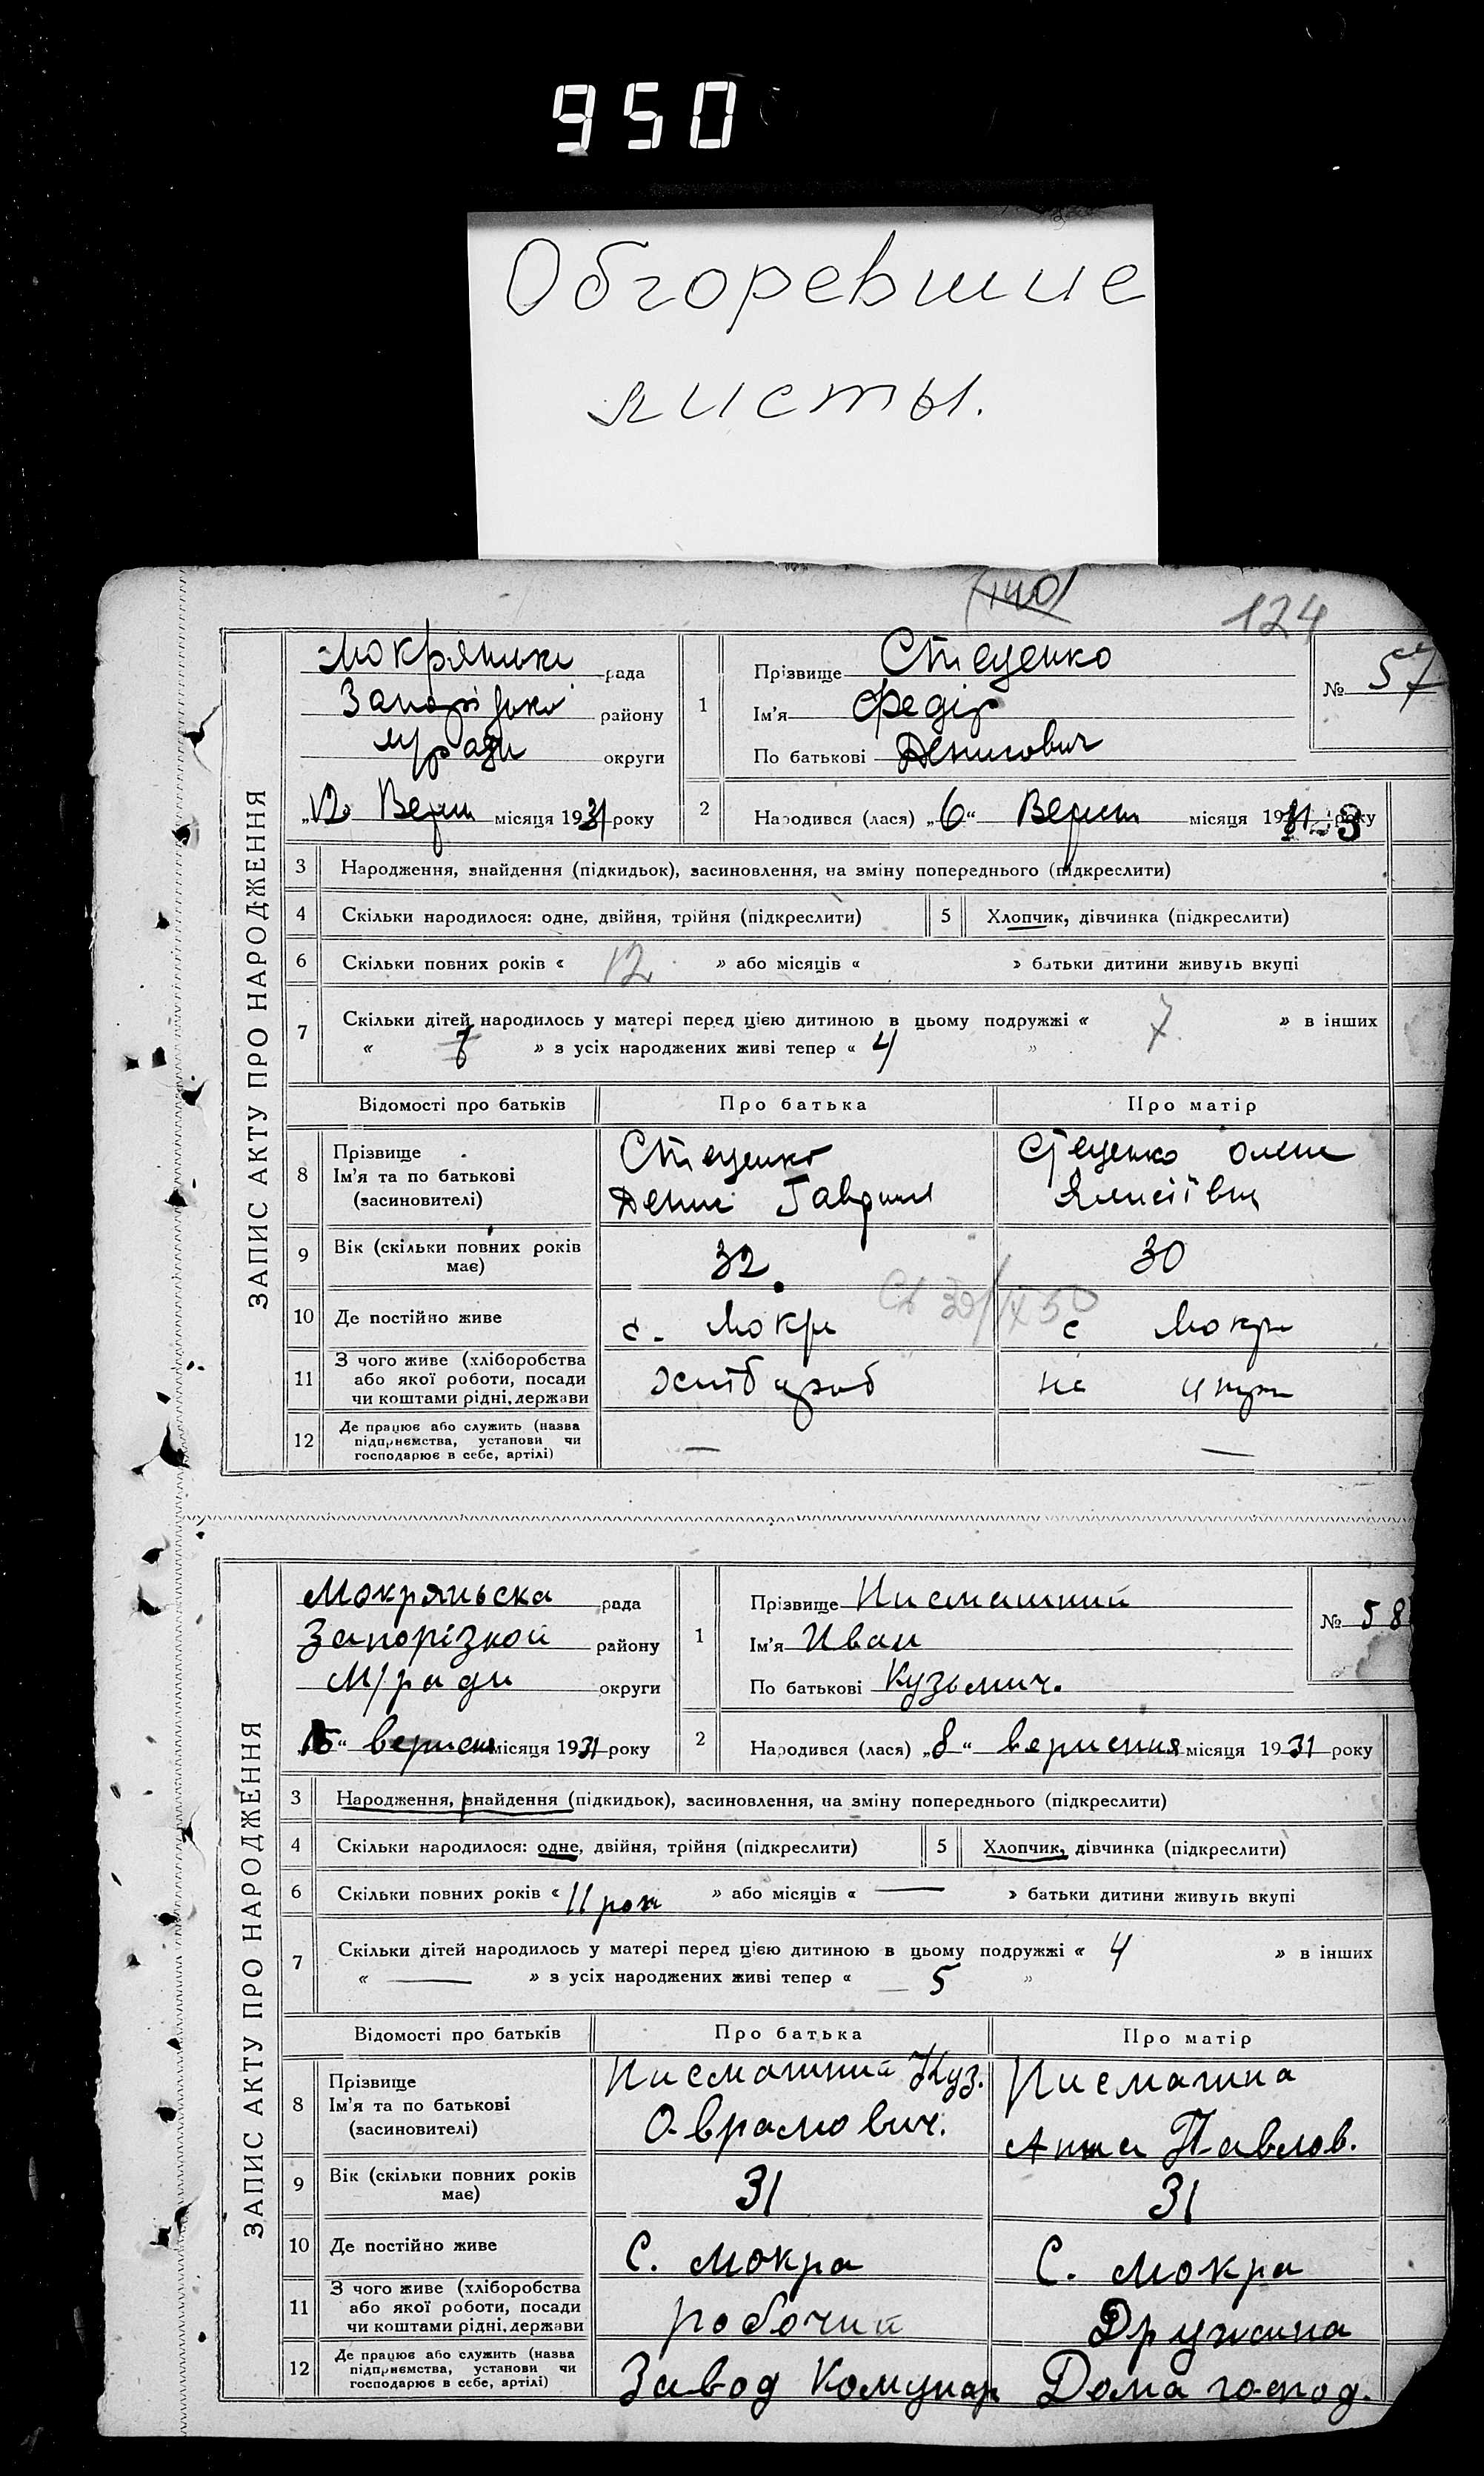 950
Обгоревшие
листы.
(140)
124
ЗАПИС АКТУ ПРО НАРОДЖЕННЯ
рада
району
М/ради округи
„12“ Верес місяця 1931 року
1
Прізвище Стеценко
Ім'я Федір
По батькові Денисович
№ 57
2
Народився (лася) „6“ Верес місяця 1931 року
3 Народження, знайдення (підкидьок), засиновлення, на зміну попереднього (підкреслити)
4 Скільки народилося: одне, двійня, трійня (підкреслити) 5 Хлопчик, дівчинка (підкреслити)
6 Скільки повних років « 12 » або місяців « » батьки дитини живуть вкупі
7 Скільки дітей народилось у матері перед цією дитиною в цьому подружжі « 7 » в інших
« » з усіх народжених живі тепер « 4 »
Відомості про батьків Про батька Про матір
8 Прізвище
Ім'я та по батькові
(засиновителі)
Стеценко
Денис Гаврил
Стеценко Олена
9 Вік (скільки повних років
має)
32
30
10 Де постійно живе
с. Мокра
с Мокра
11 З чого живе (хліборобства
або якої роботи, посади
чи коштами рідні, держави
хлібороб
12 Де працює або служить (назва
підприємства, установи чи
господарює в себе, артілі)
— —
ЗАПИС АКТУ ПРО НАРОДЖЕННЯ
Мокряньска рада
Запорізкой району
М/ради округи
„15“ вересня місяця 1931 року
1
Прізвище Писмашний
Ім'я Иван
По батькові Кузьмич.
№ 58
2
Народився (лася) „8“ вересння місяця 1931 року
3 Народження, знайдення (підкидьок), засиновлення, на зміну попереднього (підкреслити)
4 Скільки народилося: одне, двійня, трійня (підкреслити) 5 Хлопчик, дівчинка (підкреслити)
6 Скільки повних років « 11 рок » або місяців « — » батьки дитини живуть вкупі
7 Скільки дітей народилось у матері перед цією дитиною в цьому подружжі « 4 » в інших
« — » з усіх народжених живі тепер « 5 »
Відомості про батьків Про батька Про матір
8 Прізвище
Ім'я та по батькові
(засиновителі)
Писмашний Куз.
Оврамович.
Писмашна
Анна Павлов.
9 Вік (скільки повних років
має)
31
31
10 Де постійно живе
С. Мокра
С. Мокра
11 З чого живе (хліборобства
або якої роботи, посади
чи коштами рідні, держави
робочий
Дружина
12 Де працює або служить (назва
підприємства, установи чи
господарює в себе, артілі)
Завод Комунар
Дома господ.